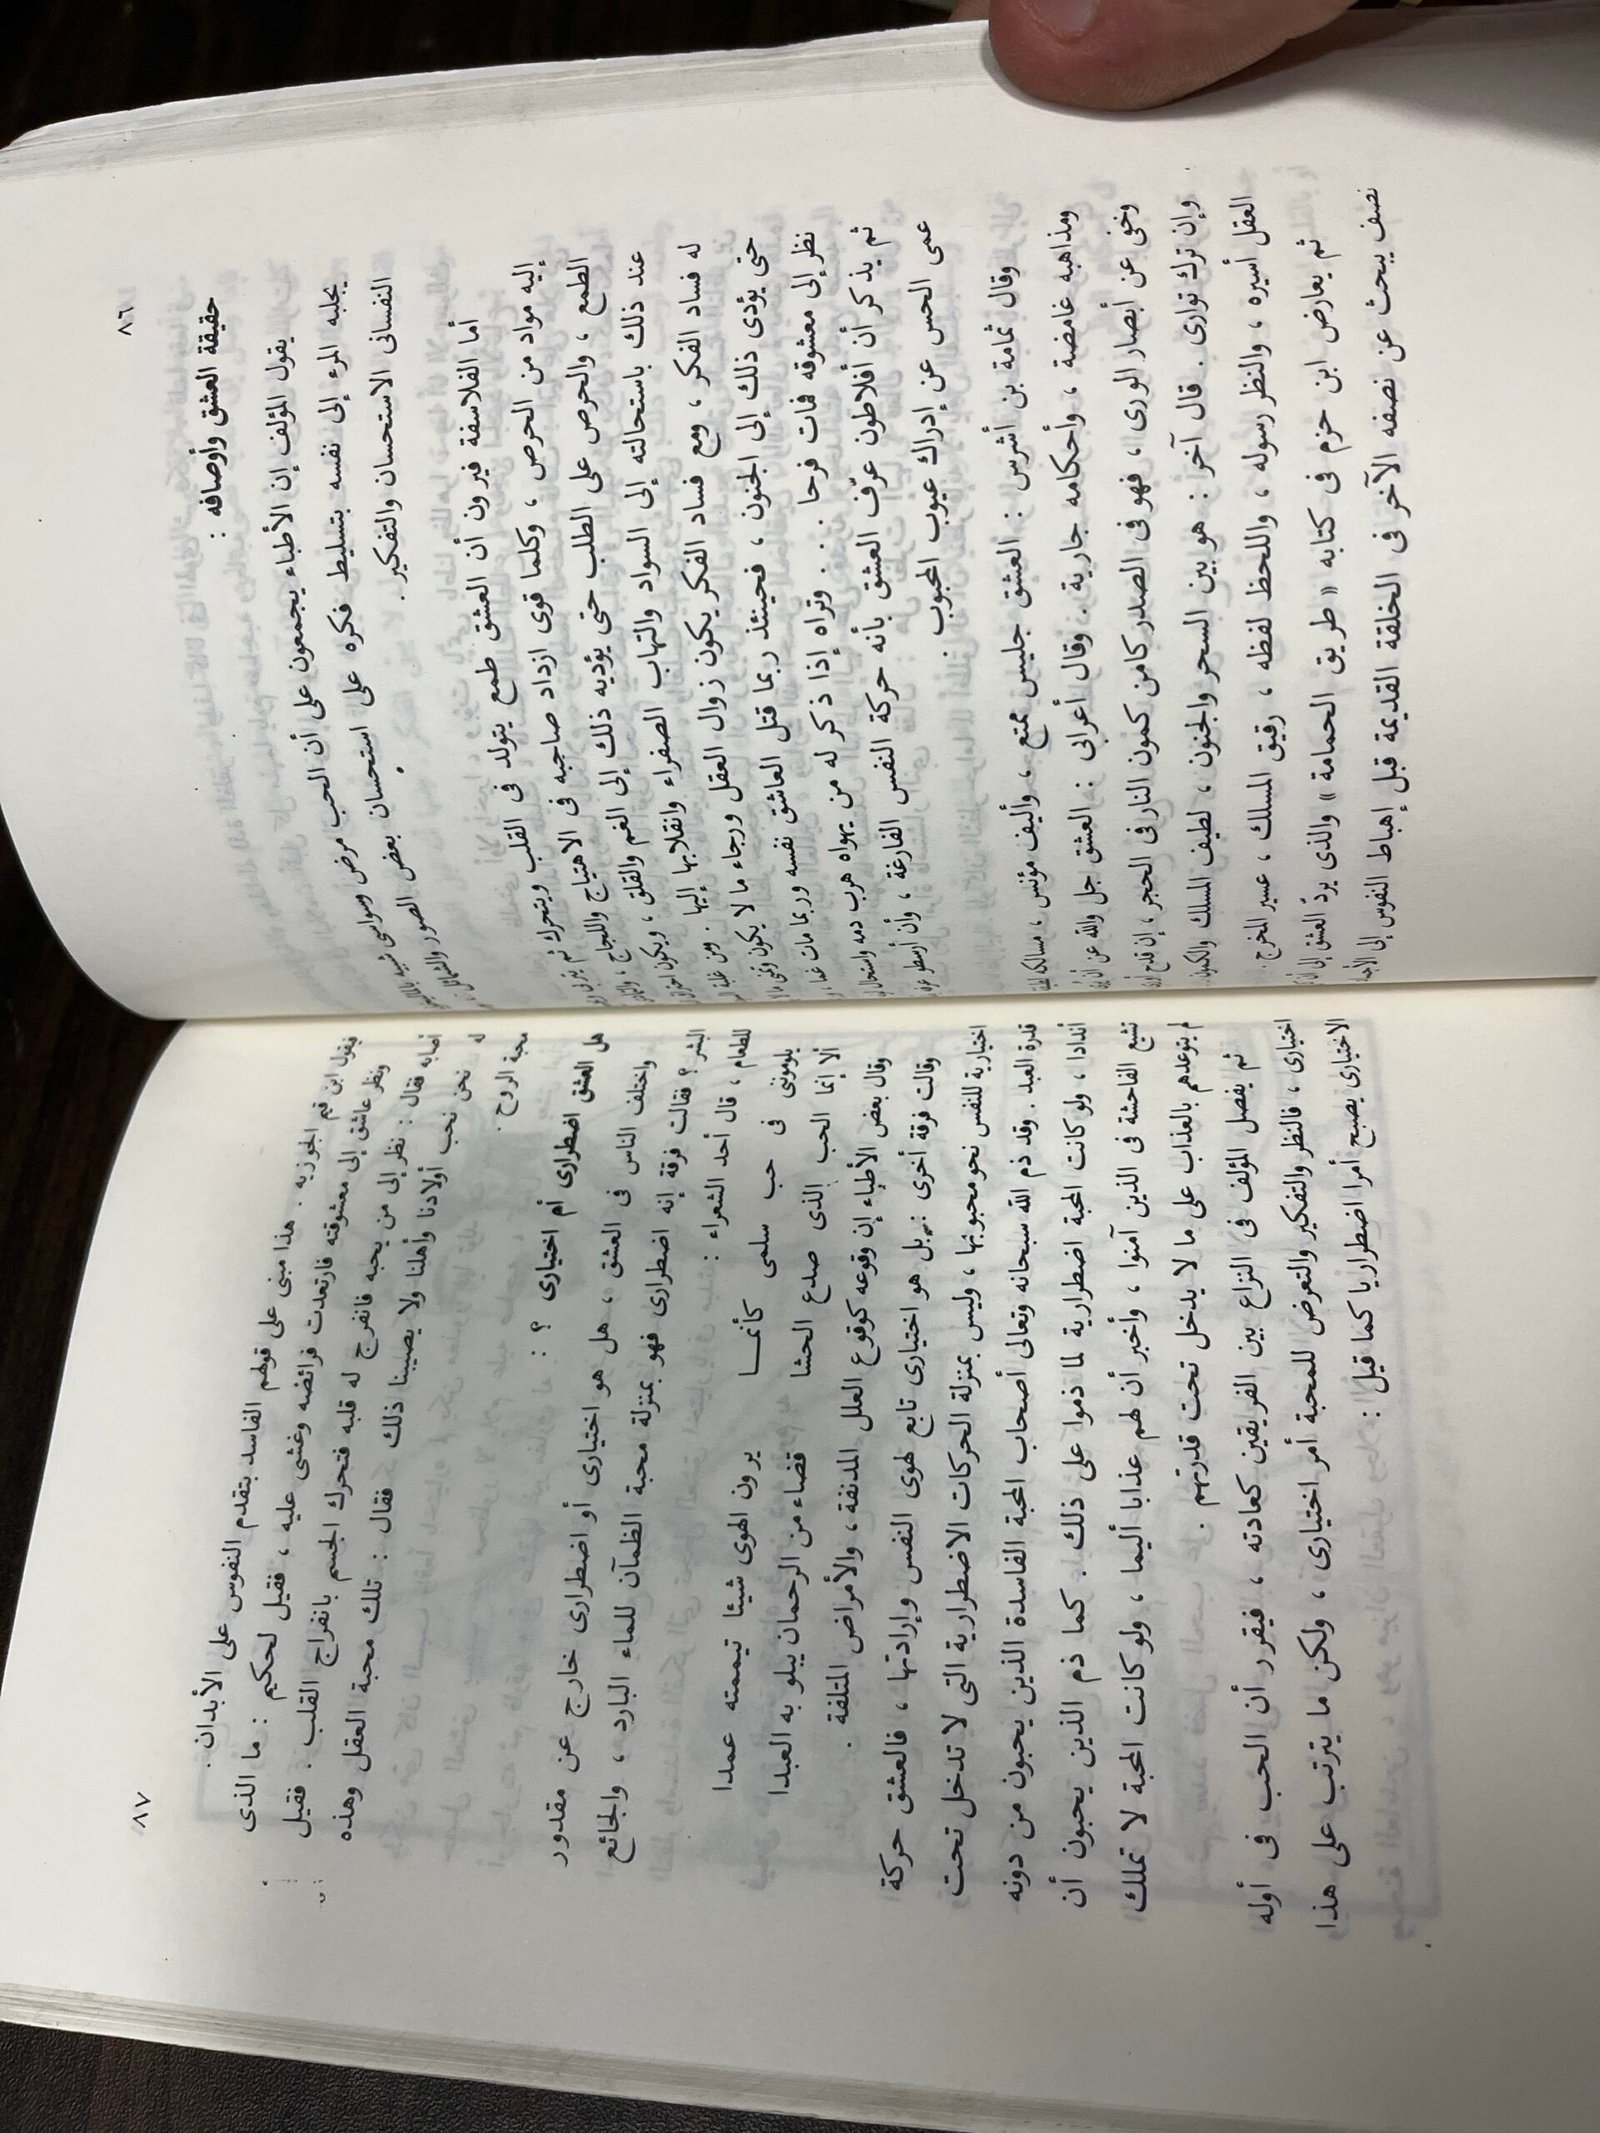 ٨٦
حقيقة العشق وأوصافه :
يقول المؤلف إن الأطباء يجمعون على أن الحب مرض وسواسى شبيه
يجلبه المرء إلى نفسه بتسليط فكره على استحسان بعض الصور والشمائل
النفسانى الاستحسان والتفكير .
أما الفلاسفة فيرون أن العشق طمع يتولد فى القلب ويتحرك ثم
إليه مواد من الحرص ، وكلما قوى ازداد صاحبه فى الاهتياج واللجاج ،
الطمع ، والحرص على الطلب حتى يؤديه ذلك إلى الغم والقلق ، ويكون
عند ذلك باستحالته إلى السواد والتهاب الصفراء وانقلابها إليها . ومن
له فساد الفكر ، ومع فساد الفكر يكون زوال العقل ورجاء ما لا يكون
حتى يؤدى ذلك إلى الجنون ، فحينئذ ربما قتل العاشق نفسه وربما مات
نظر إلى معشوقه فمات فرحا .. وتراه إذا ذكر له من يهواه هرب دمه واستحال
ثم يذكر أن أفلاطون عرّف العشق بأنه حركة النفس الفارغة ، وأن أرسطو
عمى الحس عن إدراك عيوب المحبوب .
وقال ثمامة بن أشرس : العشق جليس ممتع ، وأليف مؤنس ، مسالكه
ومذاهبه غامضة ، وأحكامه جارية . وقال أعرابى : العشق جل والله عن أن
وخفى عن أبصار الورى ، فهو فى الصدر كامن كمون النار فى الحجر ، إن قدح
وإن ترك توارى . قال آخر : هو بين السحر والجنون ، لطيف المسلك
العقل أسيره ، والنظر رسوله ، واللحظ لفظه ، رقيق المسلك ، عسير المخرج .
ثم يعارض ابن حزم فى كتابه « طريق الحمامة » والذى يردّ العشق إلى أن
نصف يبحث عن نصفه الآخر فى الخلقة القديمة قبل إهباط النفوس إلى
٨٧
فيقول ابن قيم الجوزيه . هذا مبنى على قولهم الفاسد بتقدم النفوس على الأبدان .
ونظر عاشق إلى معشوقته فارتعدت فرائصه وغشى عليه ، فقيل لحكيم : ما الذى
أصابه فقال : نظر إلى من يحبه فانفرج له قلبه فتحرك الجسم بانفراج القلب . فقيل
له نحن نحب أولادنا وأهلنا ولا يصيبنا ذلك فقال : تلك محبة العقل وهذه
محبة الروح .
هل العشق اضطرارى أم اختيارى ؟ :
واختلف الناس فى العشق ، هل هو اختيارى أو اضطرارى خارج عن مقدور
البشر ؟ فقالت فرقة إنه اضطرارى فهو بمنزلة محبة الظمآن للماء البارد ، والجائع
للطعام ، قال أحد الشعراء :
يلوموننى فى حب سلمى كأنما يرون الهوى شيئا تيممته عمدا
ألا إنما الحب الذى صدع الحشا قضاء من الرحمان يبلو به العبدا
وقال بعض الأطباء إن وقوعه كوقوع العلل المدنفة ، والأمراض المتلفة .
وقالت فرقة أخرى : بل هو اختيارى تابع لهوى النفس وإرادتها ، فالعشق حركة
اختيارية للنفس نحو محبوبها ، وليس بمنزلة الحركات الاضطرارية التى لا تدخل تحت
قدرة العبد . وقد ذم الله سبحانه وتعالى أصحاب المحبة الفاسدة الذين يحبون من دونه
أندادا ، ولو كانت المحبة اضطرارية لما ذموا على ذلك . كما ذم الذين يحبون أن
تشيع الفاحشة فى الذين آمنوا ، وأخبر أن لهم عذابا أليما ، ولو كانت المحبة لا تملك
لم يتوعدهم بالعذاب على ما لا يدخل تحت قدرتهم .
ثم يفصل المؤلف فى النزاع بين الفريقين كعادته ، فيقرر أن الحب فى أوله
اختيارى ، فالنظر والتفكير والتعرض للمحبة أمر اختيارى ، ولكن ما يترتب على هذا
الاختيارى يصبح أمرا اضطراريا كما قيل :